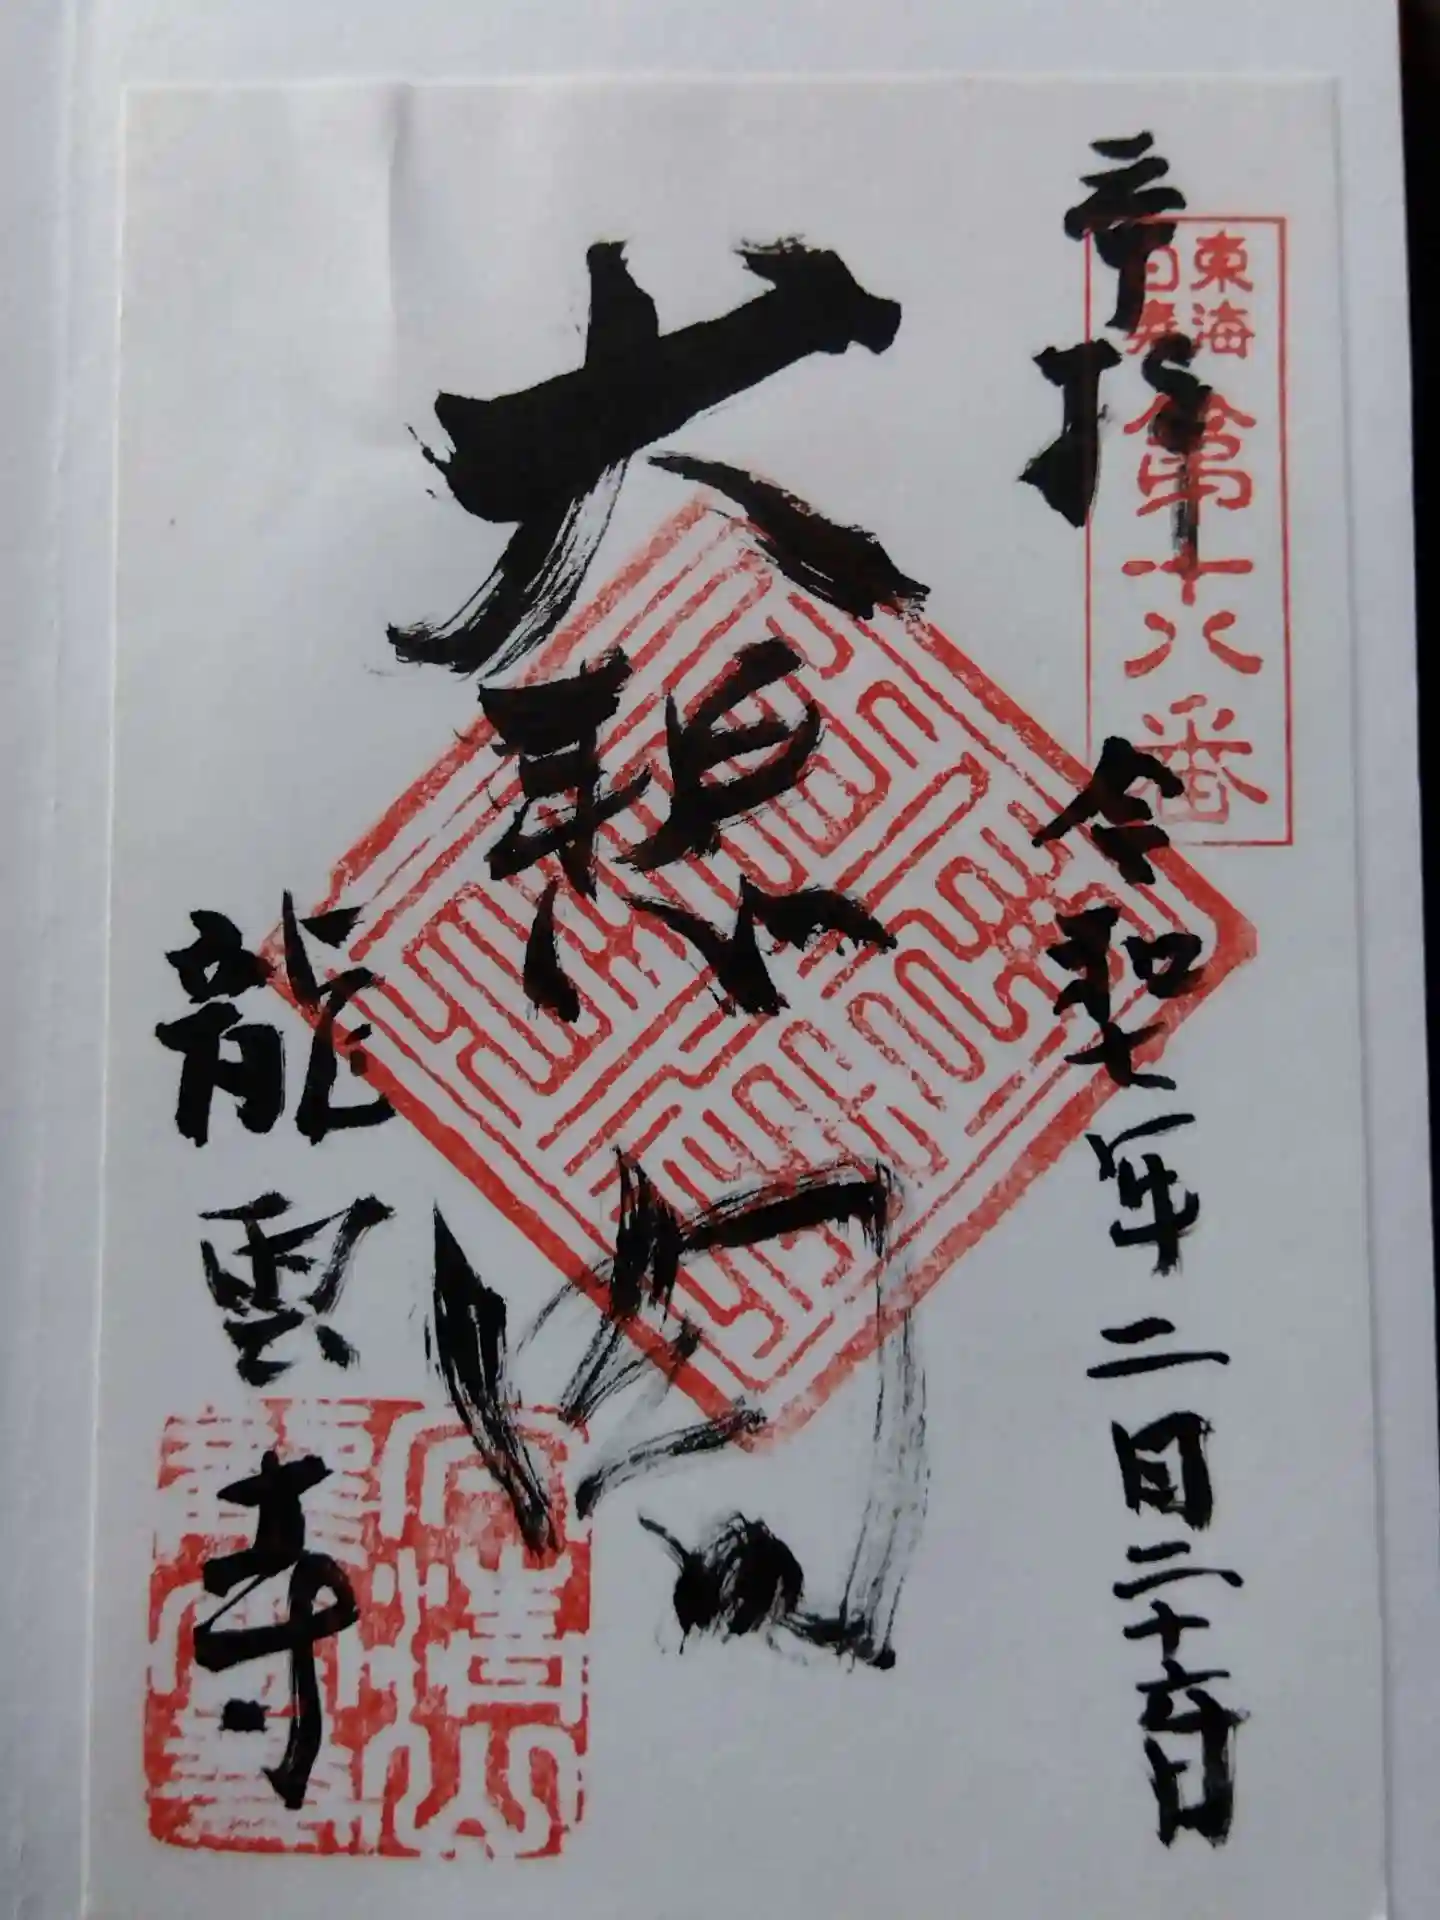 奉拝
東海
白寿
第十八番
令和七年二月二十六日
大悲閣
龍雲寺